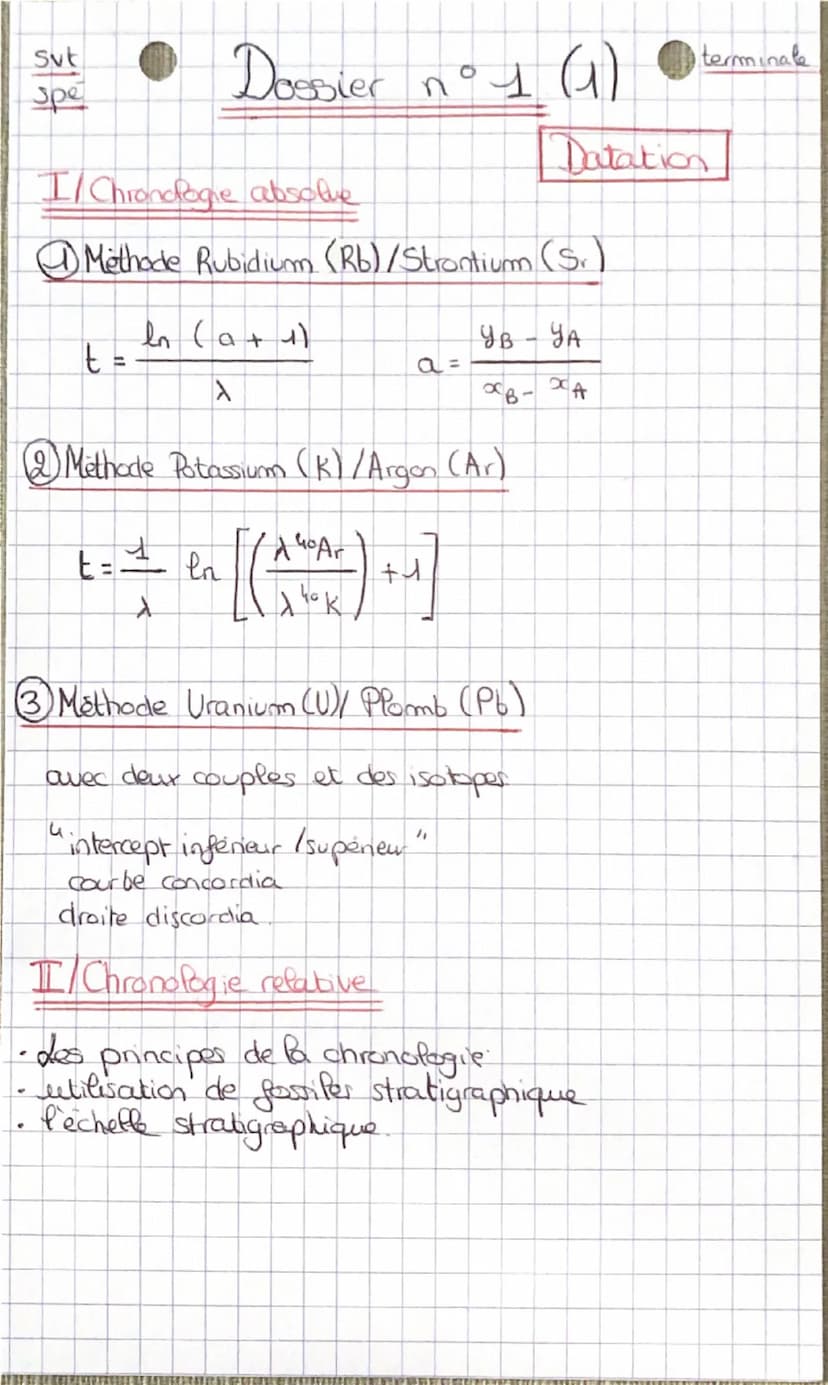 svt
spé
Dossier n° 1 (1)
terminale
Datation
I/ Chronologie absolue
① Méthode Rubidium (Rb) / Strontium (Sr)
t = ln (a + 1) / λ
a = yB - yA / xB - xA
② Méthode Potassium (K) / Argon (Ar)
t = 1/λ ln [(λ ⁴⁰Ar / λ ⁴⁰K) + 1]
③ Méthode Uranium (U)/ Plomb (Pb)
avec deux couples et des isotopes.
"intercept inférieur / supérieur"
courbe concordia
droite discordia.
II/ Chronologie relative
· les principes de la chronologie
· utilisation de fossiles stratigraphique
· l'échelle stratigraphique.